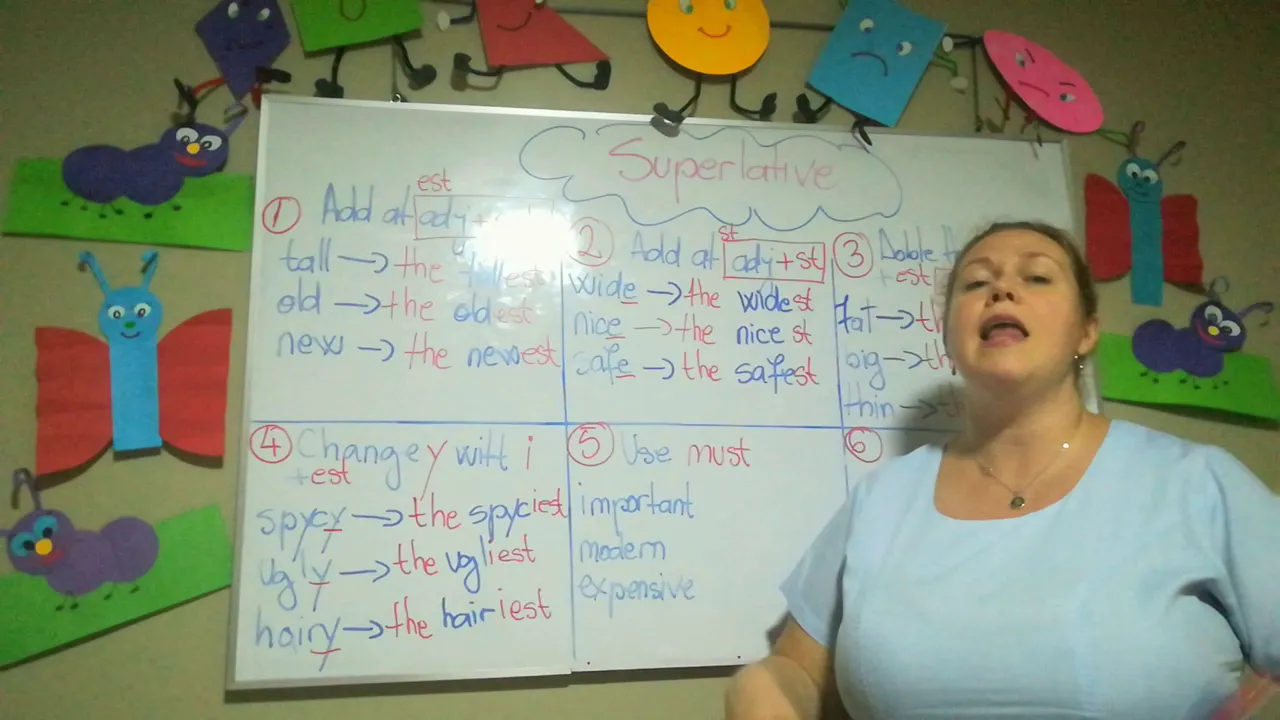 Superlative
est
① Add at adj+
tall → the tallest
old → the oldest
new → the newest
st
② Add at adj+st
wide → the widest
nice → the nice st
safe → the safest
③ Doble
+ est
fat → th
big → th
thin → th
④ Change y with i
+ est
spycy → the spyciest
ugly → the ugliest
hairy → the hairiest
⑤ Use must
important
modern
expensive
⑥